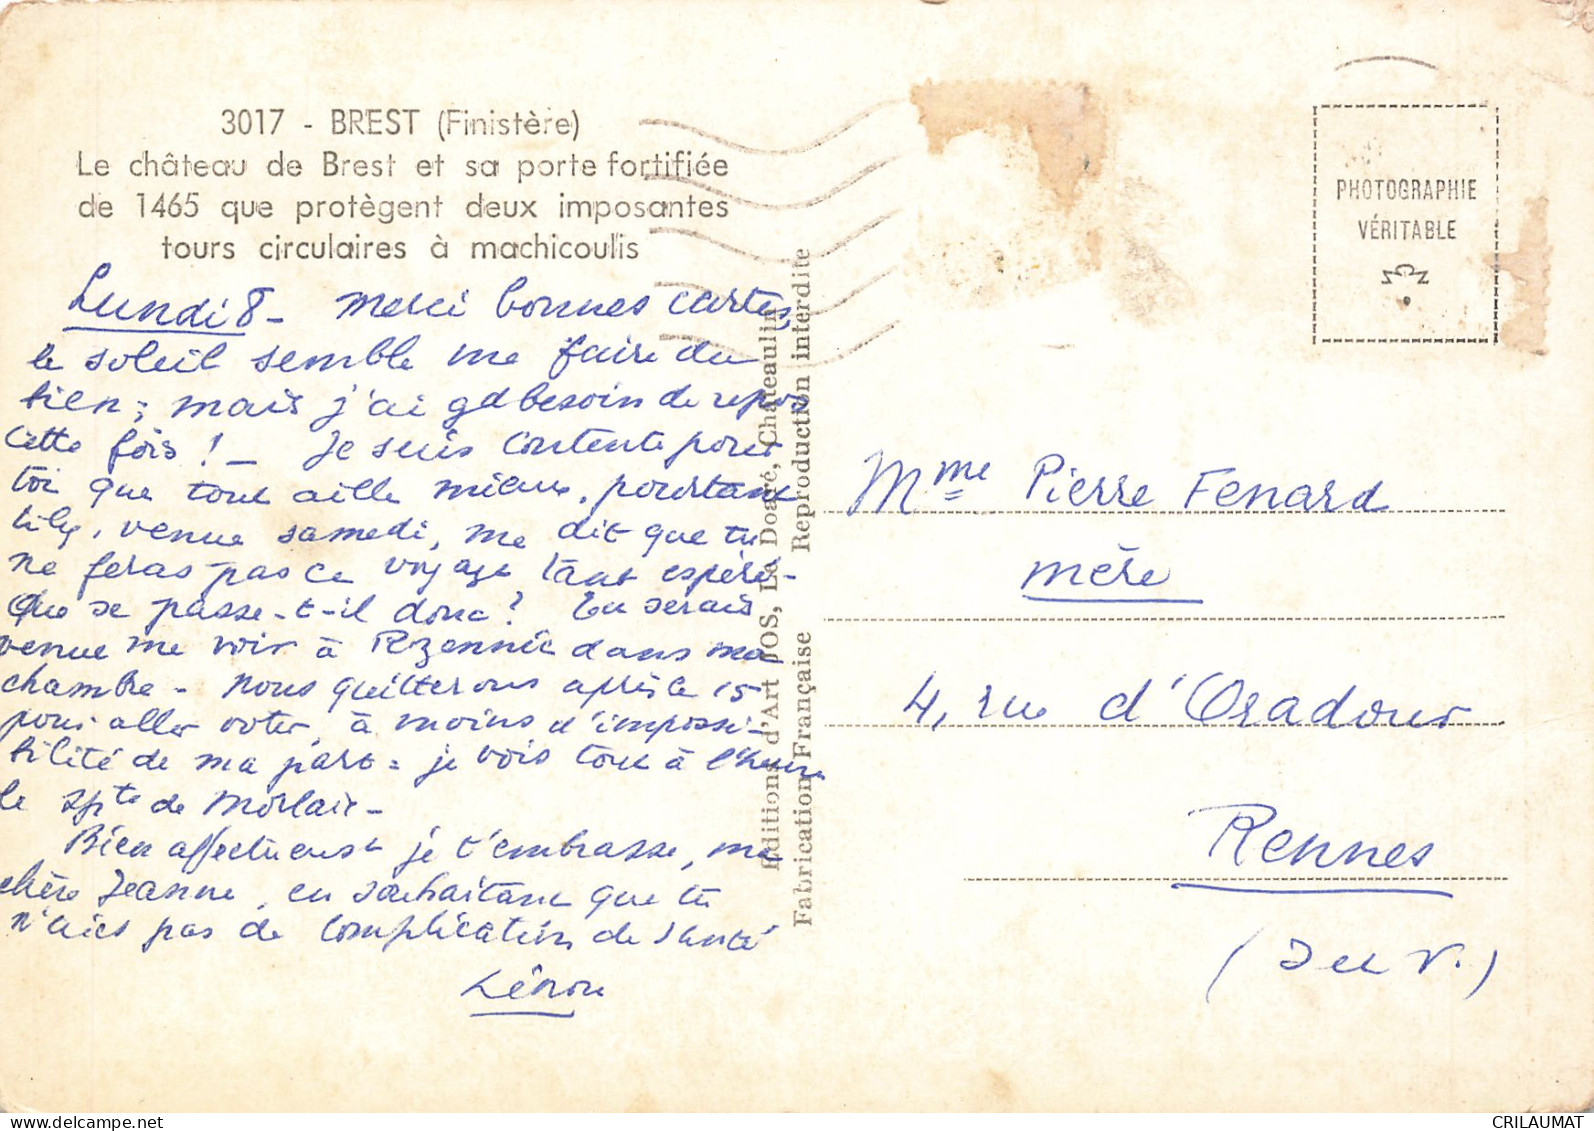 3017 - BREST (Finistère)
Le château de Brest et sa porte fortifiée
de 1465 que protègent deux imposantes
tours circulaires à machicoulis
Lundi 8 - Merci bonnes cartes,
le soleil semble me faire du
bien; mais j'ai gd besoin de repos
cette fois ! - Je suis contente pour
toi que tout aille mieux, pourtant
Lily, venue samedi, me dit que tu
ne feras pas ce voyage tant espéré -
Que se passe-t-il donc ? Tu serais
venue me voir à Rzennic dans ma
chambre - Nous quitterons après le 15
pour aller voter, à moins d'impossi-
bilité de ma part = je vois tout à l'heure
le spte de Morlaix -
Bien affectueust je t'embrasse, ma
chère Jeanne, en souhaitant que tu
n'aies pas de complication de santé
Lénou
Editions d'Art JOS, Le Doaré, Chateaulin
Fabrication Française Reproduction interdite
PHOTOGRAPHIE
VÉRITABLE
Mme Pierre Fenard
mère
4, rue d'Oradour
Rennes
(I et V.)
delcampe.net
CRILAUMAT